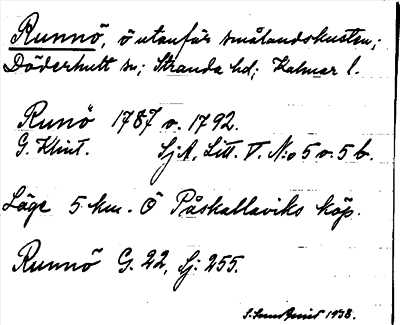 Runnö, ö utanför smålandskusten;
Döderhult sn; Stranda hd; Kalmar l.
Runö 1787 o. 1792.
G. Klint. SjA. Litt. V. N:o 5 o. 5 b.
Läge 5 km. Ö Påskallaviks köp.
Runnö G. 22, Sj: 255.
1938.